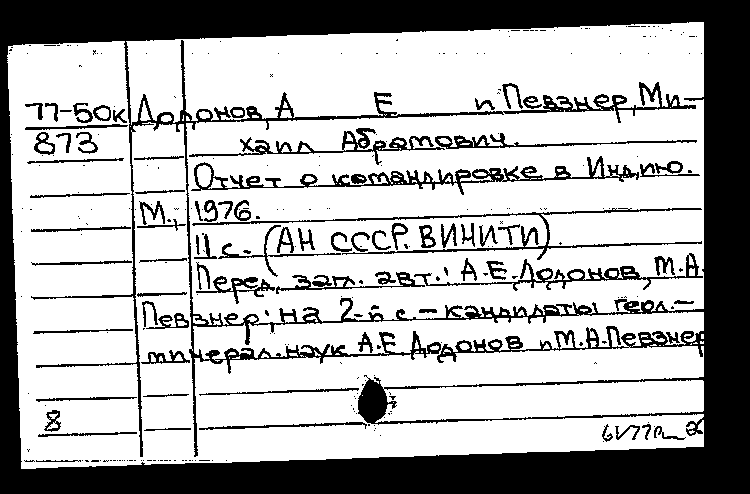 77-50к Додонов, А Е и Певзнер, Ми-
873 хаил Абрамович.
Отчет о командировке в Индию.
М., 1976.
11 с. (АН СССР. ВИНИТИ).
Перед загл. авт.: А.Е. Додонов, М.А.
Певзнер; на 2-й с. - кандидаты геол.-
минерал. наук А.Е. Додонов и М.А. Певзнер
8